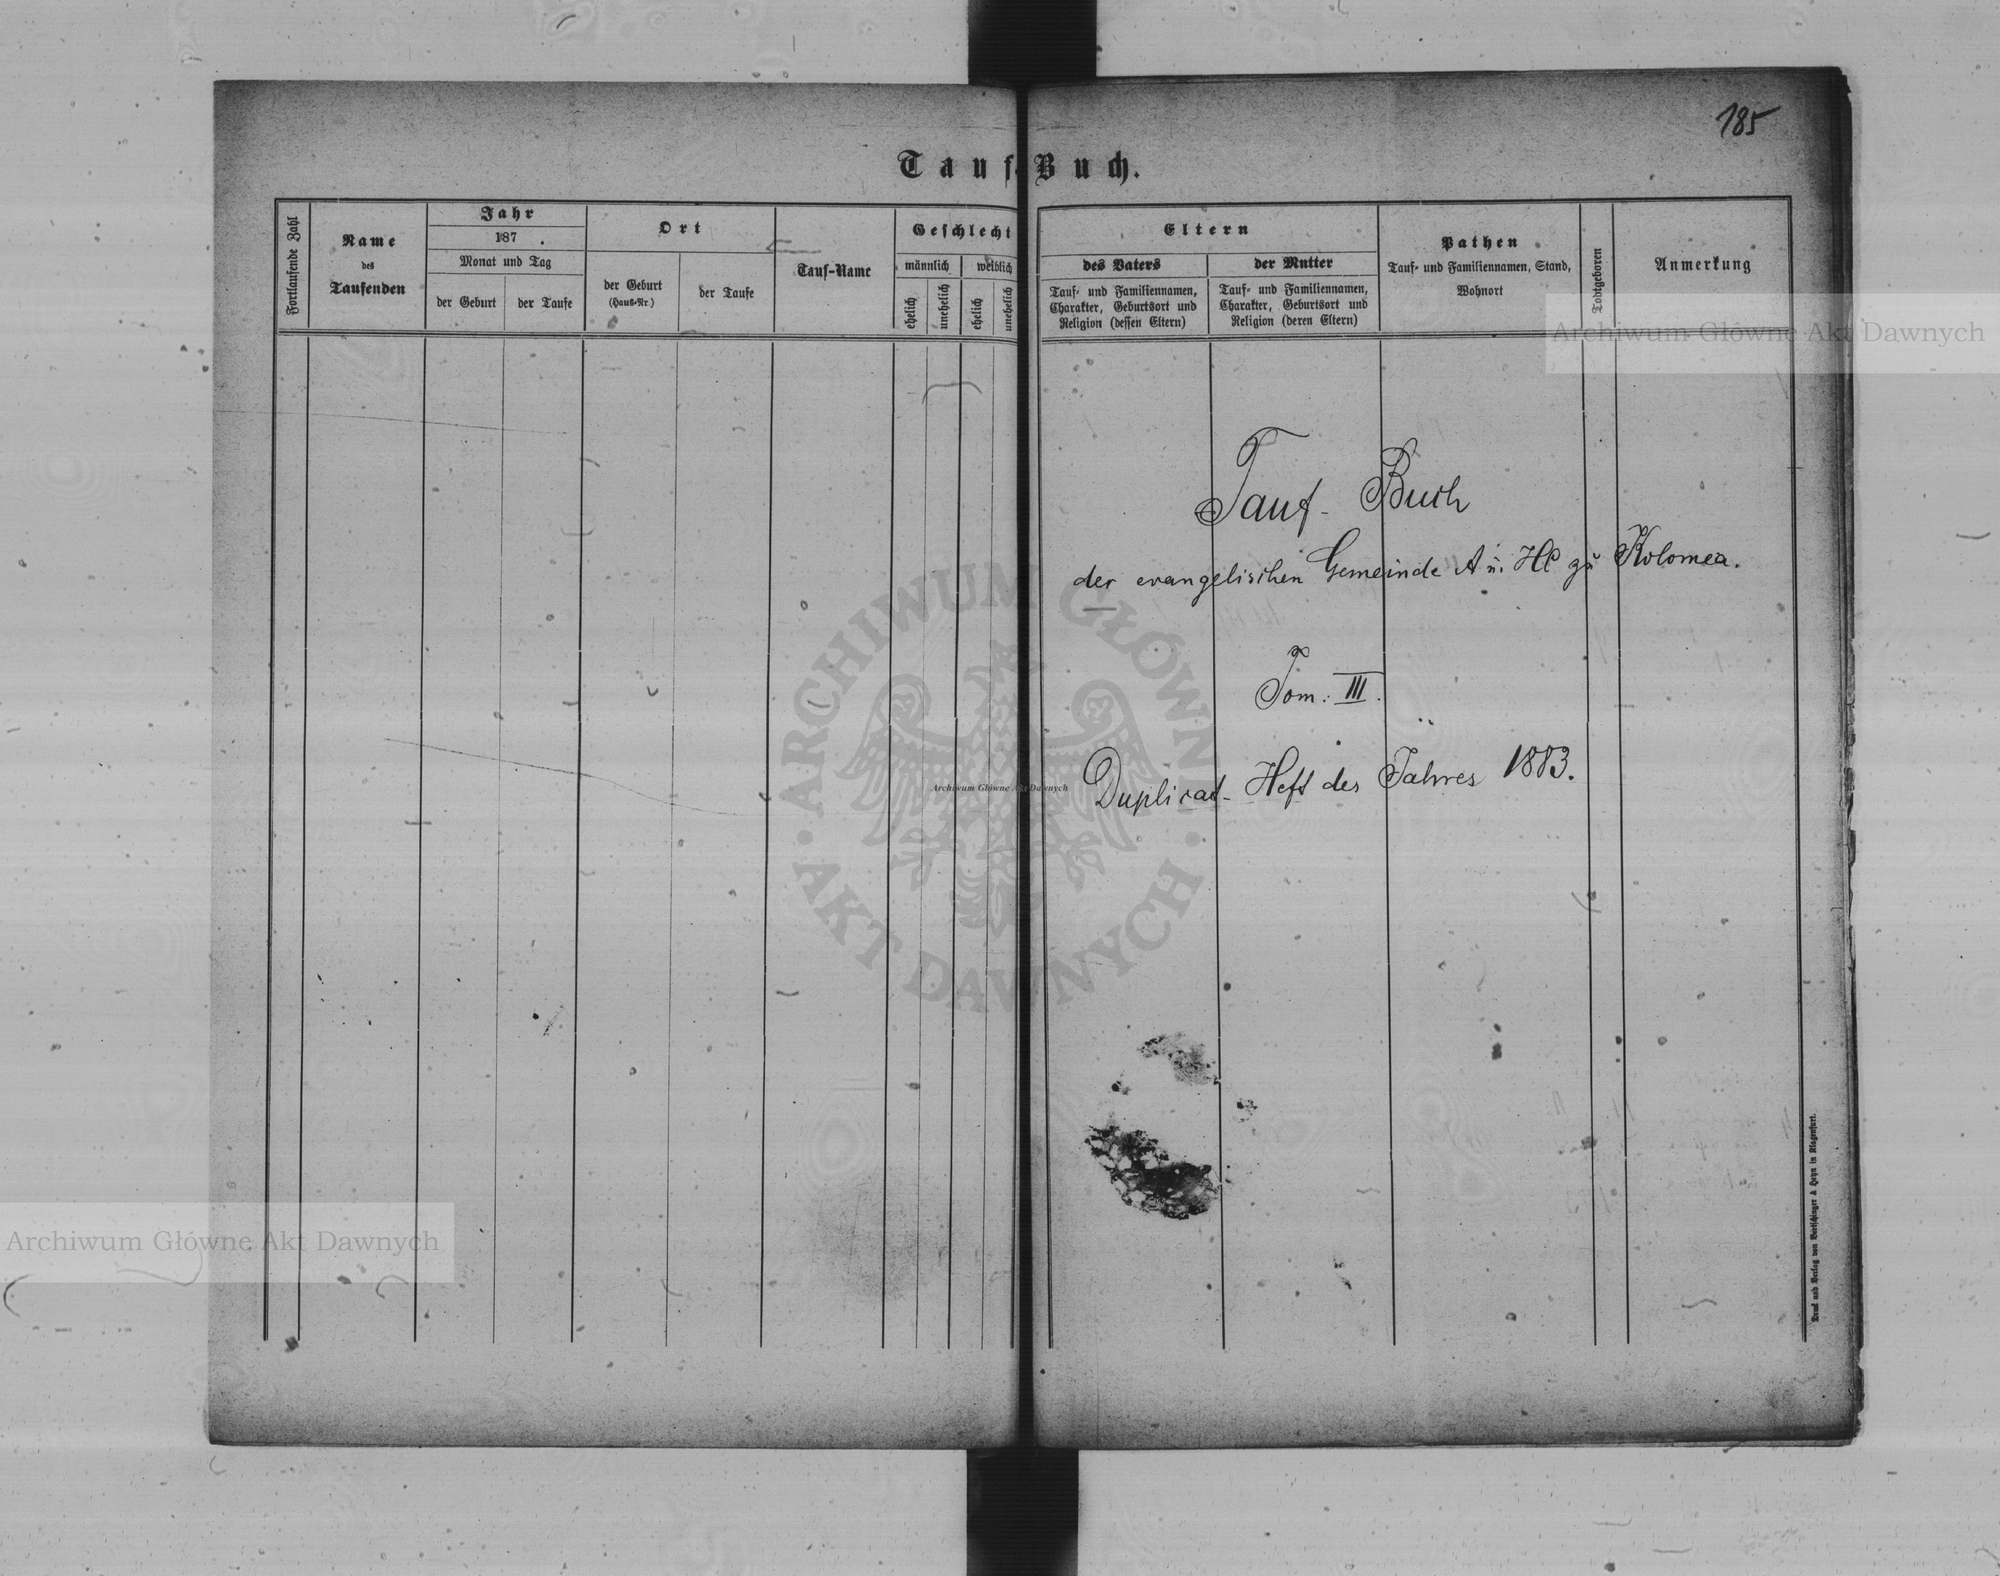 185
Tauf-Buch.
Fortlaufende Zahl
Name
des
Taufenden
Jahr
187 .
Monat und Tag
der Geburt
der Taufe
Ort
der Geburt
(Haus-Nr.)
der Taufe
Tauf-Name
Geschlecht
männlich
weiblich
ehelich
unehelich
ehelich
unehelich
Eltern
des Vaters
Tauf- und Familiennamen,
Charakter, Geburtsort und
Religion (dessen Eltern)
der Mutter
Tauf- und Familiennamen,
Charakter, Geburtsort und
Religion (deren Eltern)
Pathen
Tauf- und Familiennamen, Stand,
Wohnort
Todtgeboren
Anmerkung
Archiwum Główne Akt Dawnych
Tauf-Buch
der evangelischen Gemeinde A u. HC zu Kolomea.
Tom: III.
Duplicat-Heft des Jahres 1883.
ARCHIWUM GŁÓWNE
AKT DAWNYCH
Archiwum Główne Akt Dawnych
Archiwum Główne Akt Dawnych
Druck und Verlag von Bertschinger & Heyn in Klagenfurt.